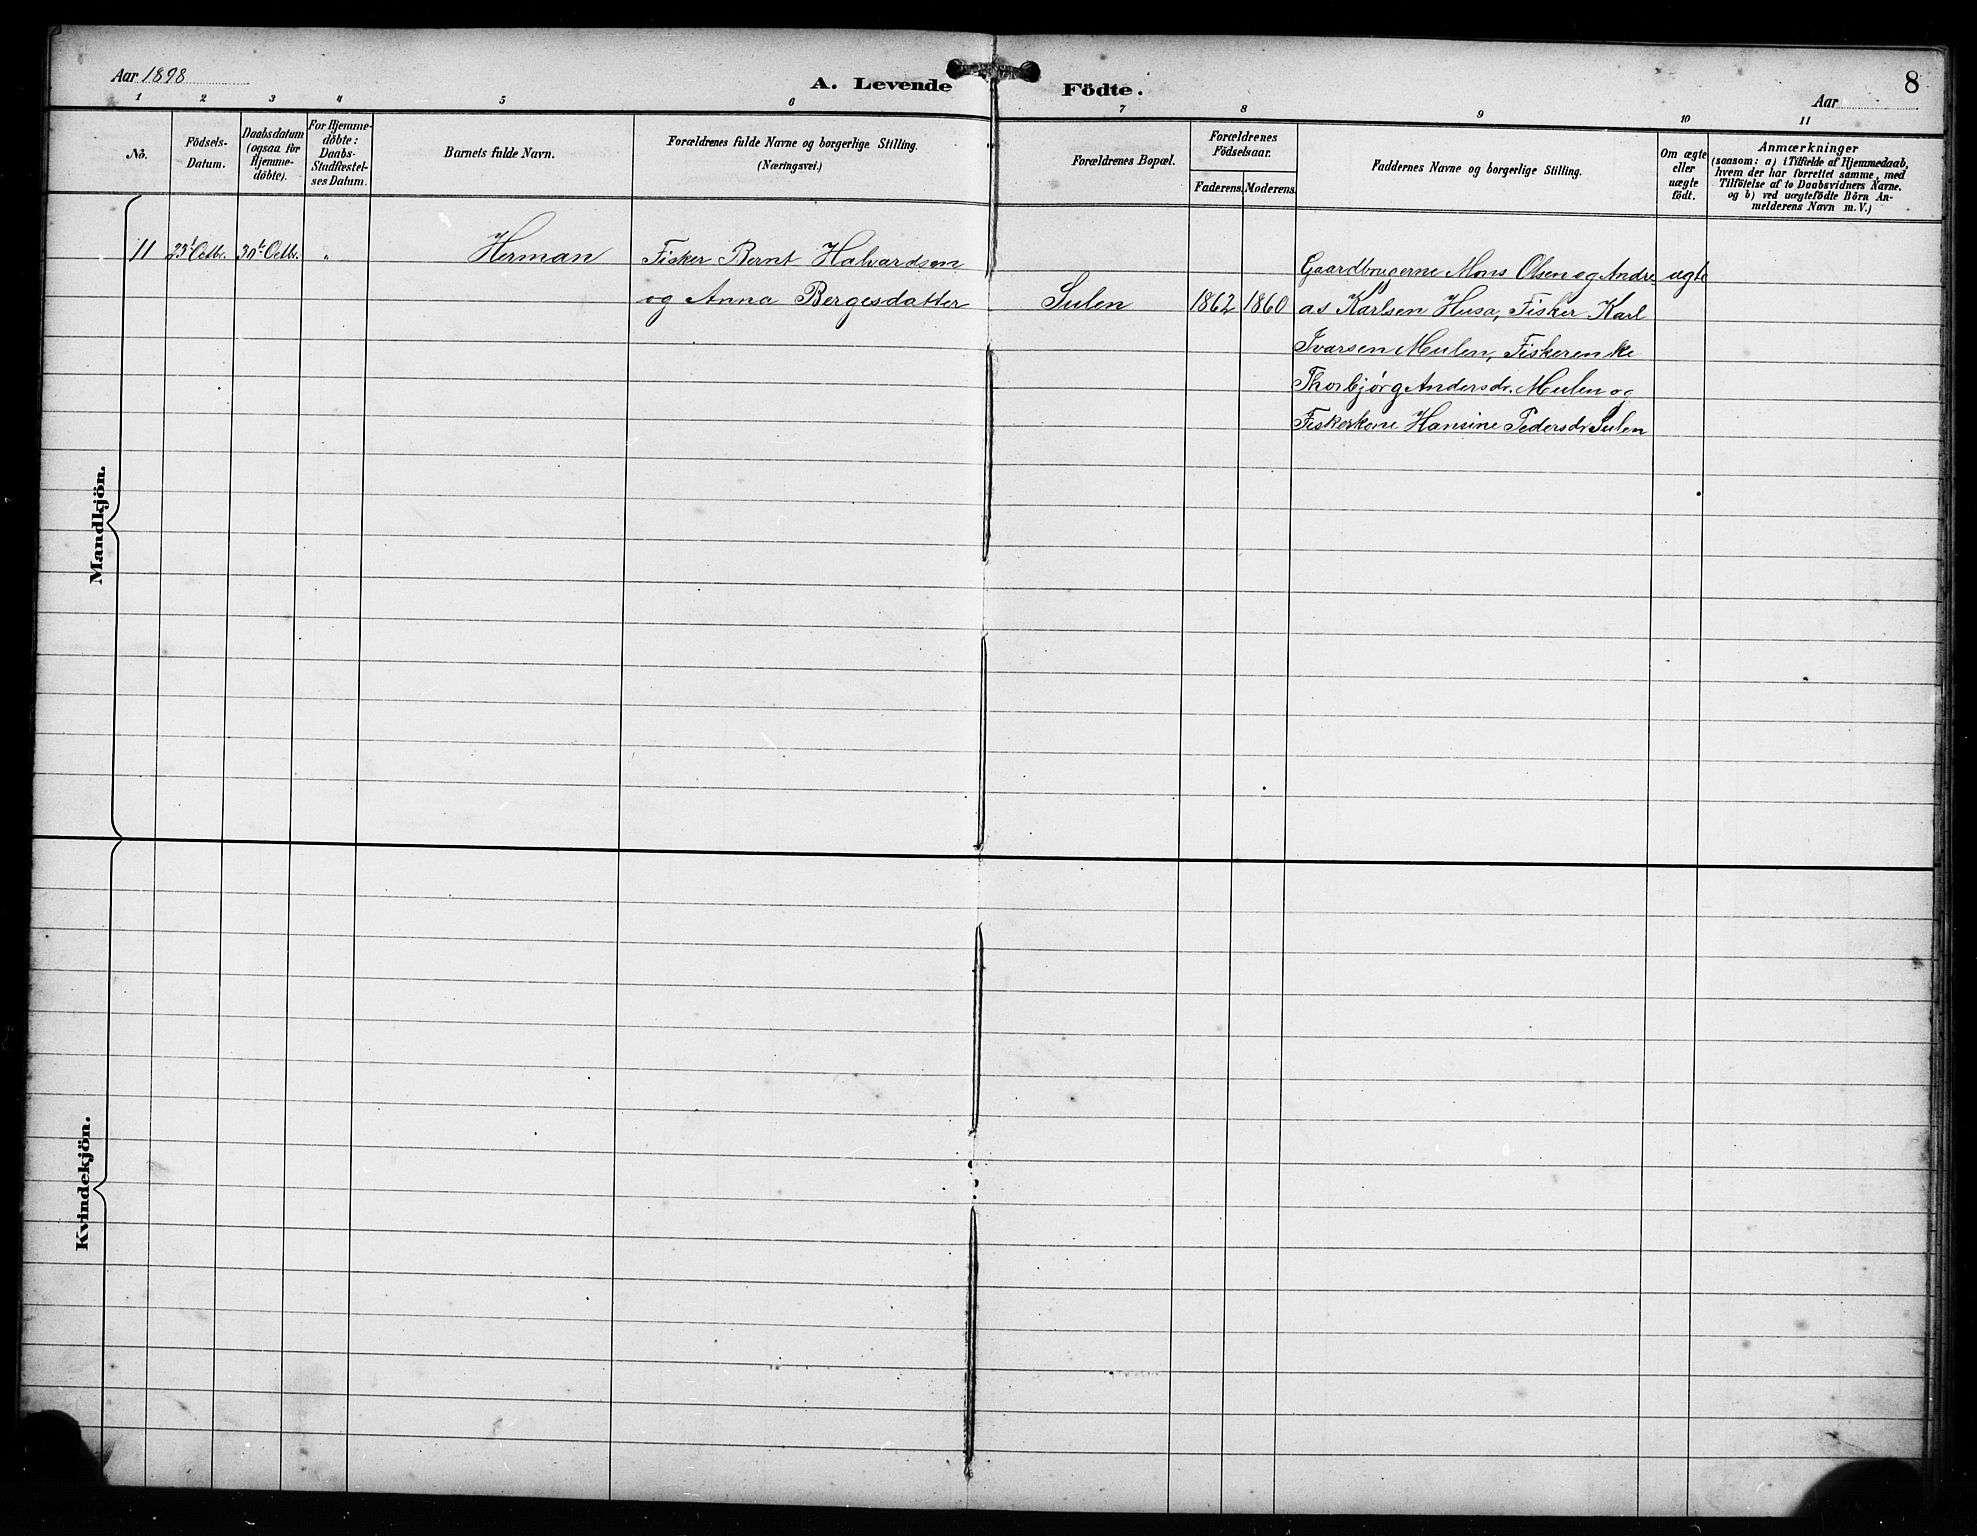 Aar 1898
A. Levende Födte.
8
Aar
1 2 3 4 5 6 7 8 9 10 11
No.
Födsels-
Datum.
Daabsdatum
(ogsaa för
Hjemme-
döbte).
For Hjemme-
döbte:
Daabs-
Stadfestel-
ses Datum.
Barnets fulde Navn.
Forældrenes fulde Navne og borgerlige Stilling.
(Næringsvei.)
Forældrenes Bopæl.
Forældrenes
Födselsaar.
Faderens. Moderens.
Faddernes Navne og borgerlige Stilling.
Om ægte
eller
uægte
födt.
Anmærkninger
(saasom: a) i Tilfælde af Hjemmedaab,
hvem der har forrettet samme, med
Tilföielse af to Daabsvidners Navne.
og b) ved uægtefödte Börn An-
melderens Navn m. V.)
Mandkjön.
11 23t Octbr. 30t Octbr. " Herman Fisker Bernt Halvardsen
og Anna Bergesdatter
Sulen 1862 1860
Gaardbrugerne Mons Olsen og Andre-
as Karlsen Husa, Fisker Karl
Ivarsen Meulen, Fiskerenke
Thorbjørg Andersdr. Meulen og
Fiskerkone Hansine Pedersdr Sulen
ægte
Kvindekjön.